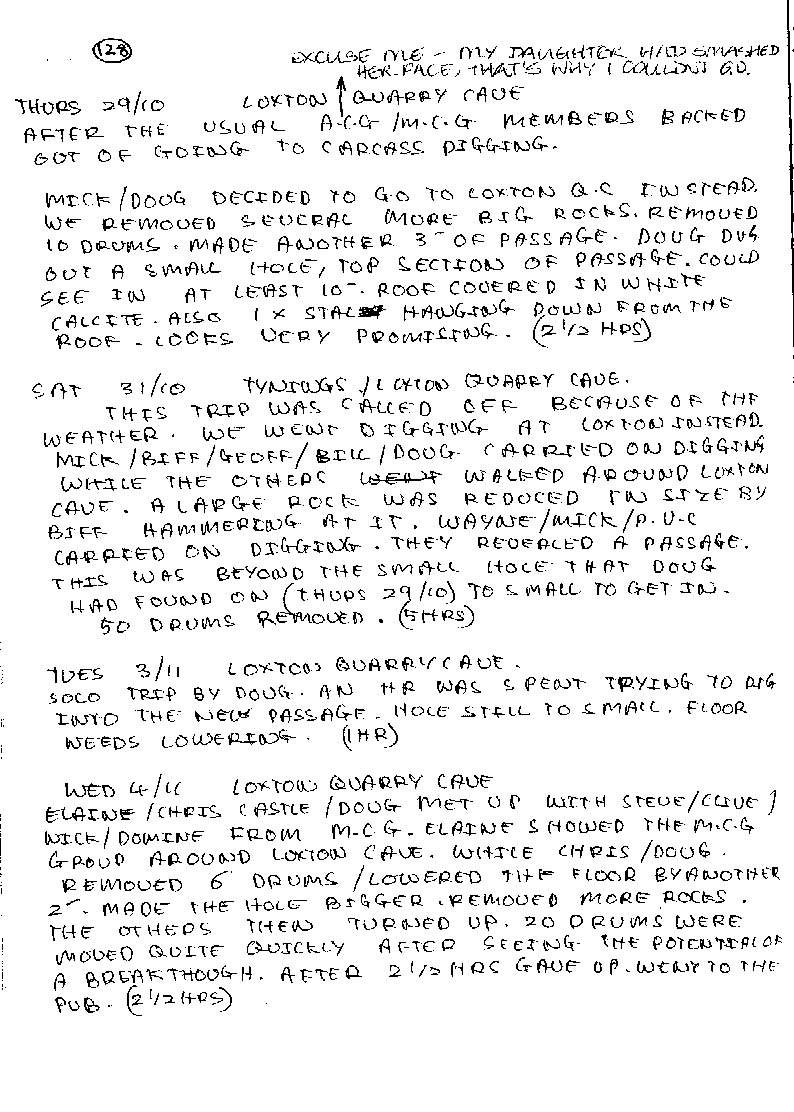 128
EXCUSE ME - MY DAUGHTER HAD SMASHED
HER FACE, THAT'S WHY I COULDN'T GO.
THURS 29/10 LOXTON QUARRY CAVE
AFTER THE USUAL A.C.G/M.C.G MEMBERS BACKED
GOT OF GOING TO CARCASS DIGGING.
MICK/DOUG DECIDED TO GO TO LOXTON Q.C INSTEAD.
WE REMOVED SEVERAL MORE BIG ROCKS. REMOVED
10 DRUMS. MADE ANOTHER 3- OF PASSAGE. DOUG DUG
OUT A SMALL HOLE, TOP SECTION OF PASSAGE. COULD
SEE IN AT LEAST 10-. ROOF COVERED IN WHITE
CALCITE. ALSO 1 X STAL HANGING DOWN FROM THE
ROOF - LOOKS VERY PROMISING. (2 1/2 HRS)
SAT 31/10 TYNINGS/LOXTON QUARRY CAVE.
THIS TRIP WAS CALLED OFF BECAUSE OF THE
WEATHER. WE WENT DIGGING AT LOXTON INSTEAD.
MICK/BIFF/GEOFF/BILL/DOUG CARRIED ON DIGGING
WHILE THE OTHERS WENT WALKED AROUND LOXTON
CAVE. A LARGE ROCK WAS REDUCED IN SIZE BY
BIFF HAMMERING AT IT. WAYNE/MICK/P.V.C
CARRIED ON DIGGING. THEY REVEALED A PASSAGE.
THIS WAS BEYOND THE SMALL HOLE THAT DOUG
HAD FOUND ON (THURS 29/10) TO SMALL TO GET IN.
50 DRUMS REMOVED. (5HRS)
TUES 3/11 LOXTON QUARRY CAVE.
SOLO TRIP BY DOUG. AN HR WAS SPENT TRYING TO DIG
INTO THE NEW PASSAGE. HOLE STILL TO SMALL. FLOOR
NEEDS LOWERING. (1HR)
WED 4/11 LOXTON QUARRY CAVE
ELAINE/CHRIS CASTLE/DOUG MET UP WITH STEVE/CLIVE/
NICK/DOMINE FROM M.C.G. ELAINE SHOWED THE M.C.G
GROUP AROUND LOXTON CAVE. WHILE CHRIS/DOUG.
REMOVED 6 DRUMS/LOWERED THE FLOOR BY ANOTHER
2-. MADE THE HOLE BIGGER. REMOVED MORE ROCKS.
THE OTHERS THEN TURNED UP. 20 DRUMS WERE
MOVED QUITE QUICKLY AFTER SEEING THE POTENTIAL OF
A BREAKTHOUGH. AFTER 2 1/2 HRS GAVE UP. WENT TO THE
PUB. (2 1/2 HRS)